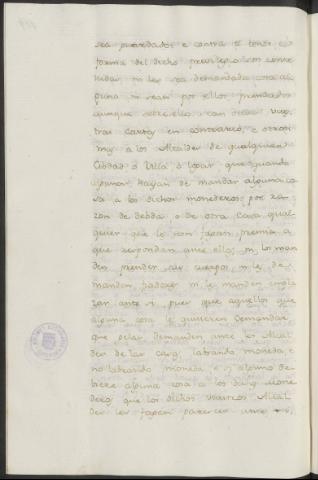 sea guardados e contra el tenor e
forma del dicho previlegio non sean
ni les sea demandada cosa al
guna ni sean por ellos prendados
aunque sobre ello son vues
tras cartas en contrario, e otrosi
my a los Alcaldes de qualquier
Cibdad o Villa o lugar que quando
algunos hayan de mandar alguna co
sa a los dichos monederos por ra
zon de debda o de otra cosa qual
quier que le non fagan premia a
que respondan ante ellos, ni los man
den prender sus cuerpos, ni les de
manden
zar ante si, pues que aquellos que
alguna cosa le quisieren demandar
que gelas demanden ante los Alcal
des de las casas, labrando moneda, e
no labrando moneda e si alguno de
biere alguna cosa a los dichos mone
deros que los dichos nuestros Alcal
des les fagan parecer ante si,